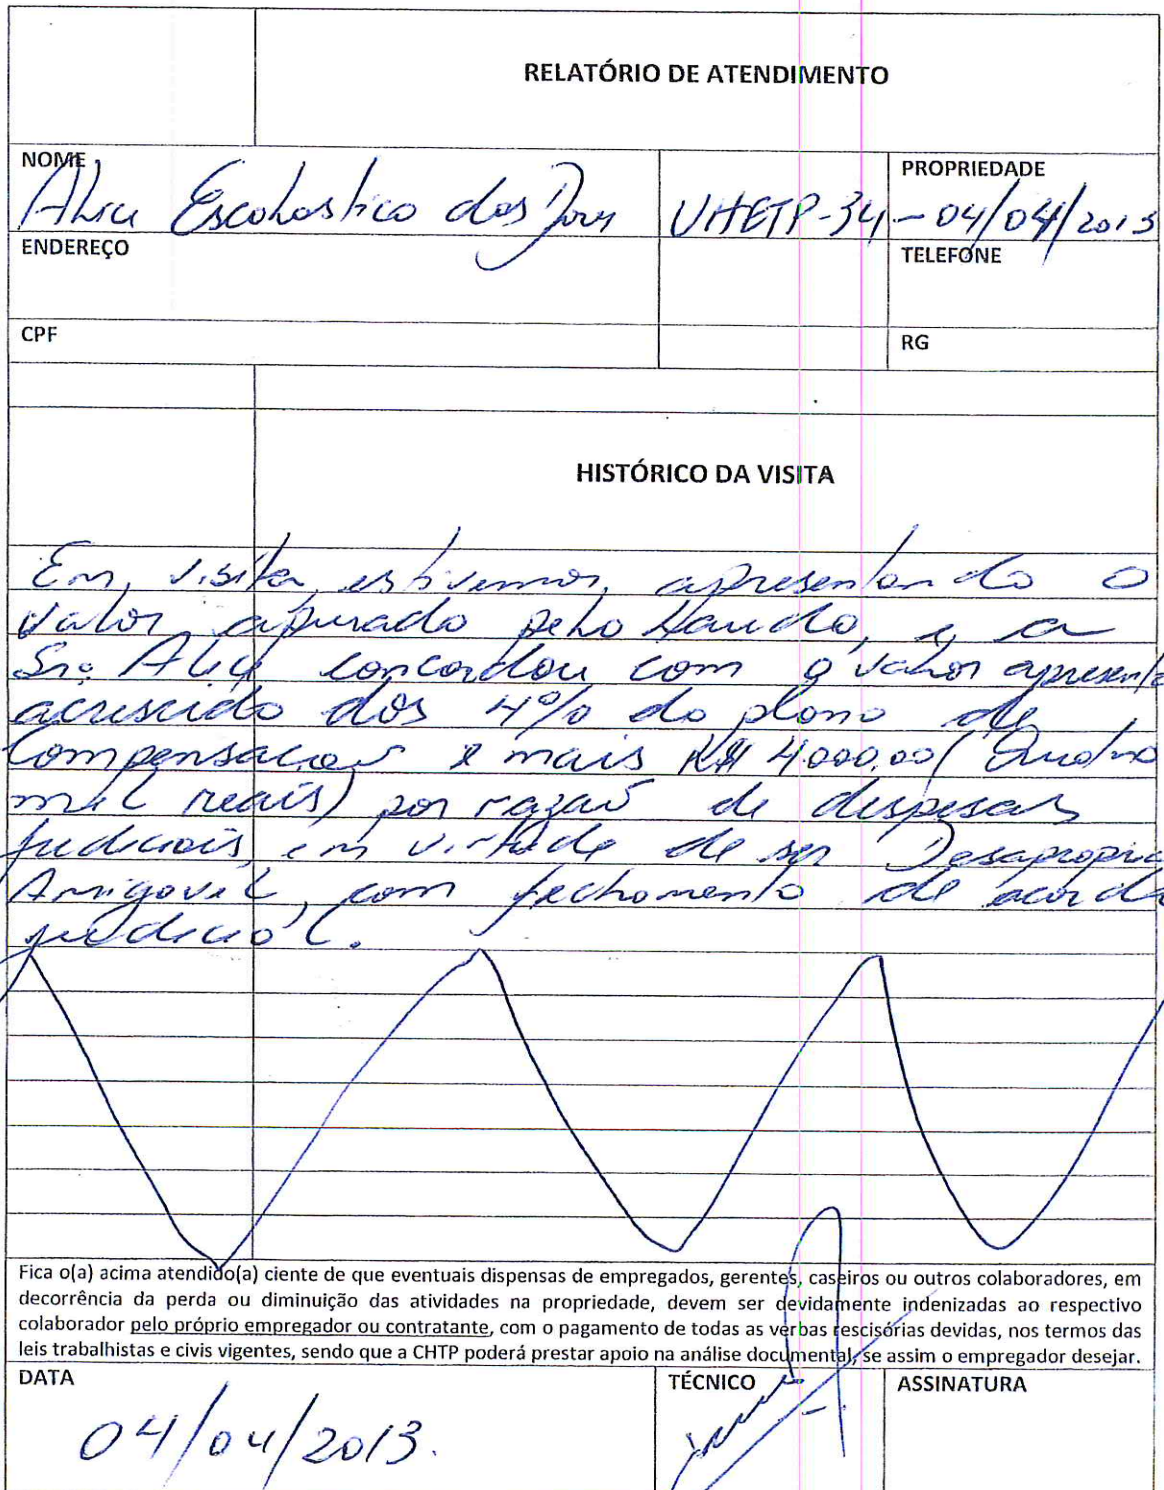 RELATÓRIO DE ATENDIMENTO
NOME
PROPRIEDADE
Escolastico dos UHETP-34 - 04/04/2013
ENDEREÇO
TELEFONE
CPF
RG
HISTÓRICO DA VISITA
Em visita estivemos apresentando o
valor apurado pelo Laudo, e a
Srª concordou com o valor apresenta
acrescido dos 4% do plano de
Compensação e mais R$ 4.000,00 (Quatro
mil reais) por razão de despesas
judiciais, em virtude de ser Desapropria
Amigavel, com fechamento de acordo
judicial.
Fica o(a) acima atendido(a) ciente de que eventuais dispensas de empregados, gerentes, caseiros ou outros colaboradores, em
decorrência da perda ou diminuição das atividades na propriedade, devem ser devidamente indenizadas ao respectivo
colaborador pelo próprio empregador ou contratante, com o pagamento de todas as verbas rescisórias devidas, nos termos das
leis trabalhistas e civis vigentes, sendo que a CHTP poderá prestar apoio na análise documental, se assim o empregador desejar.
DATA
TÉCNICO
ASSINATURA
04/04/2013.